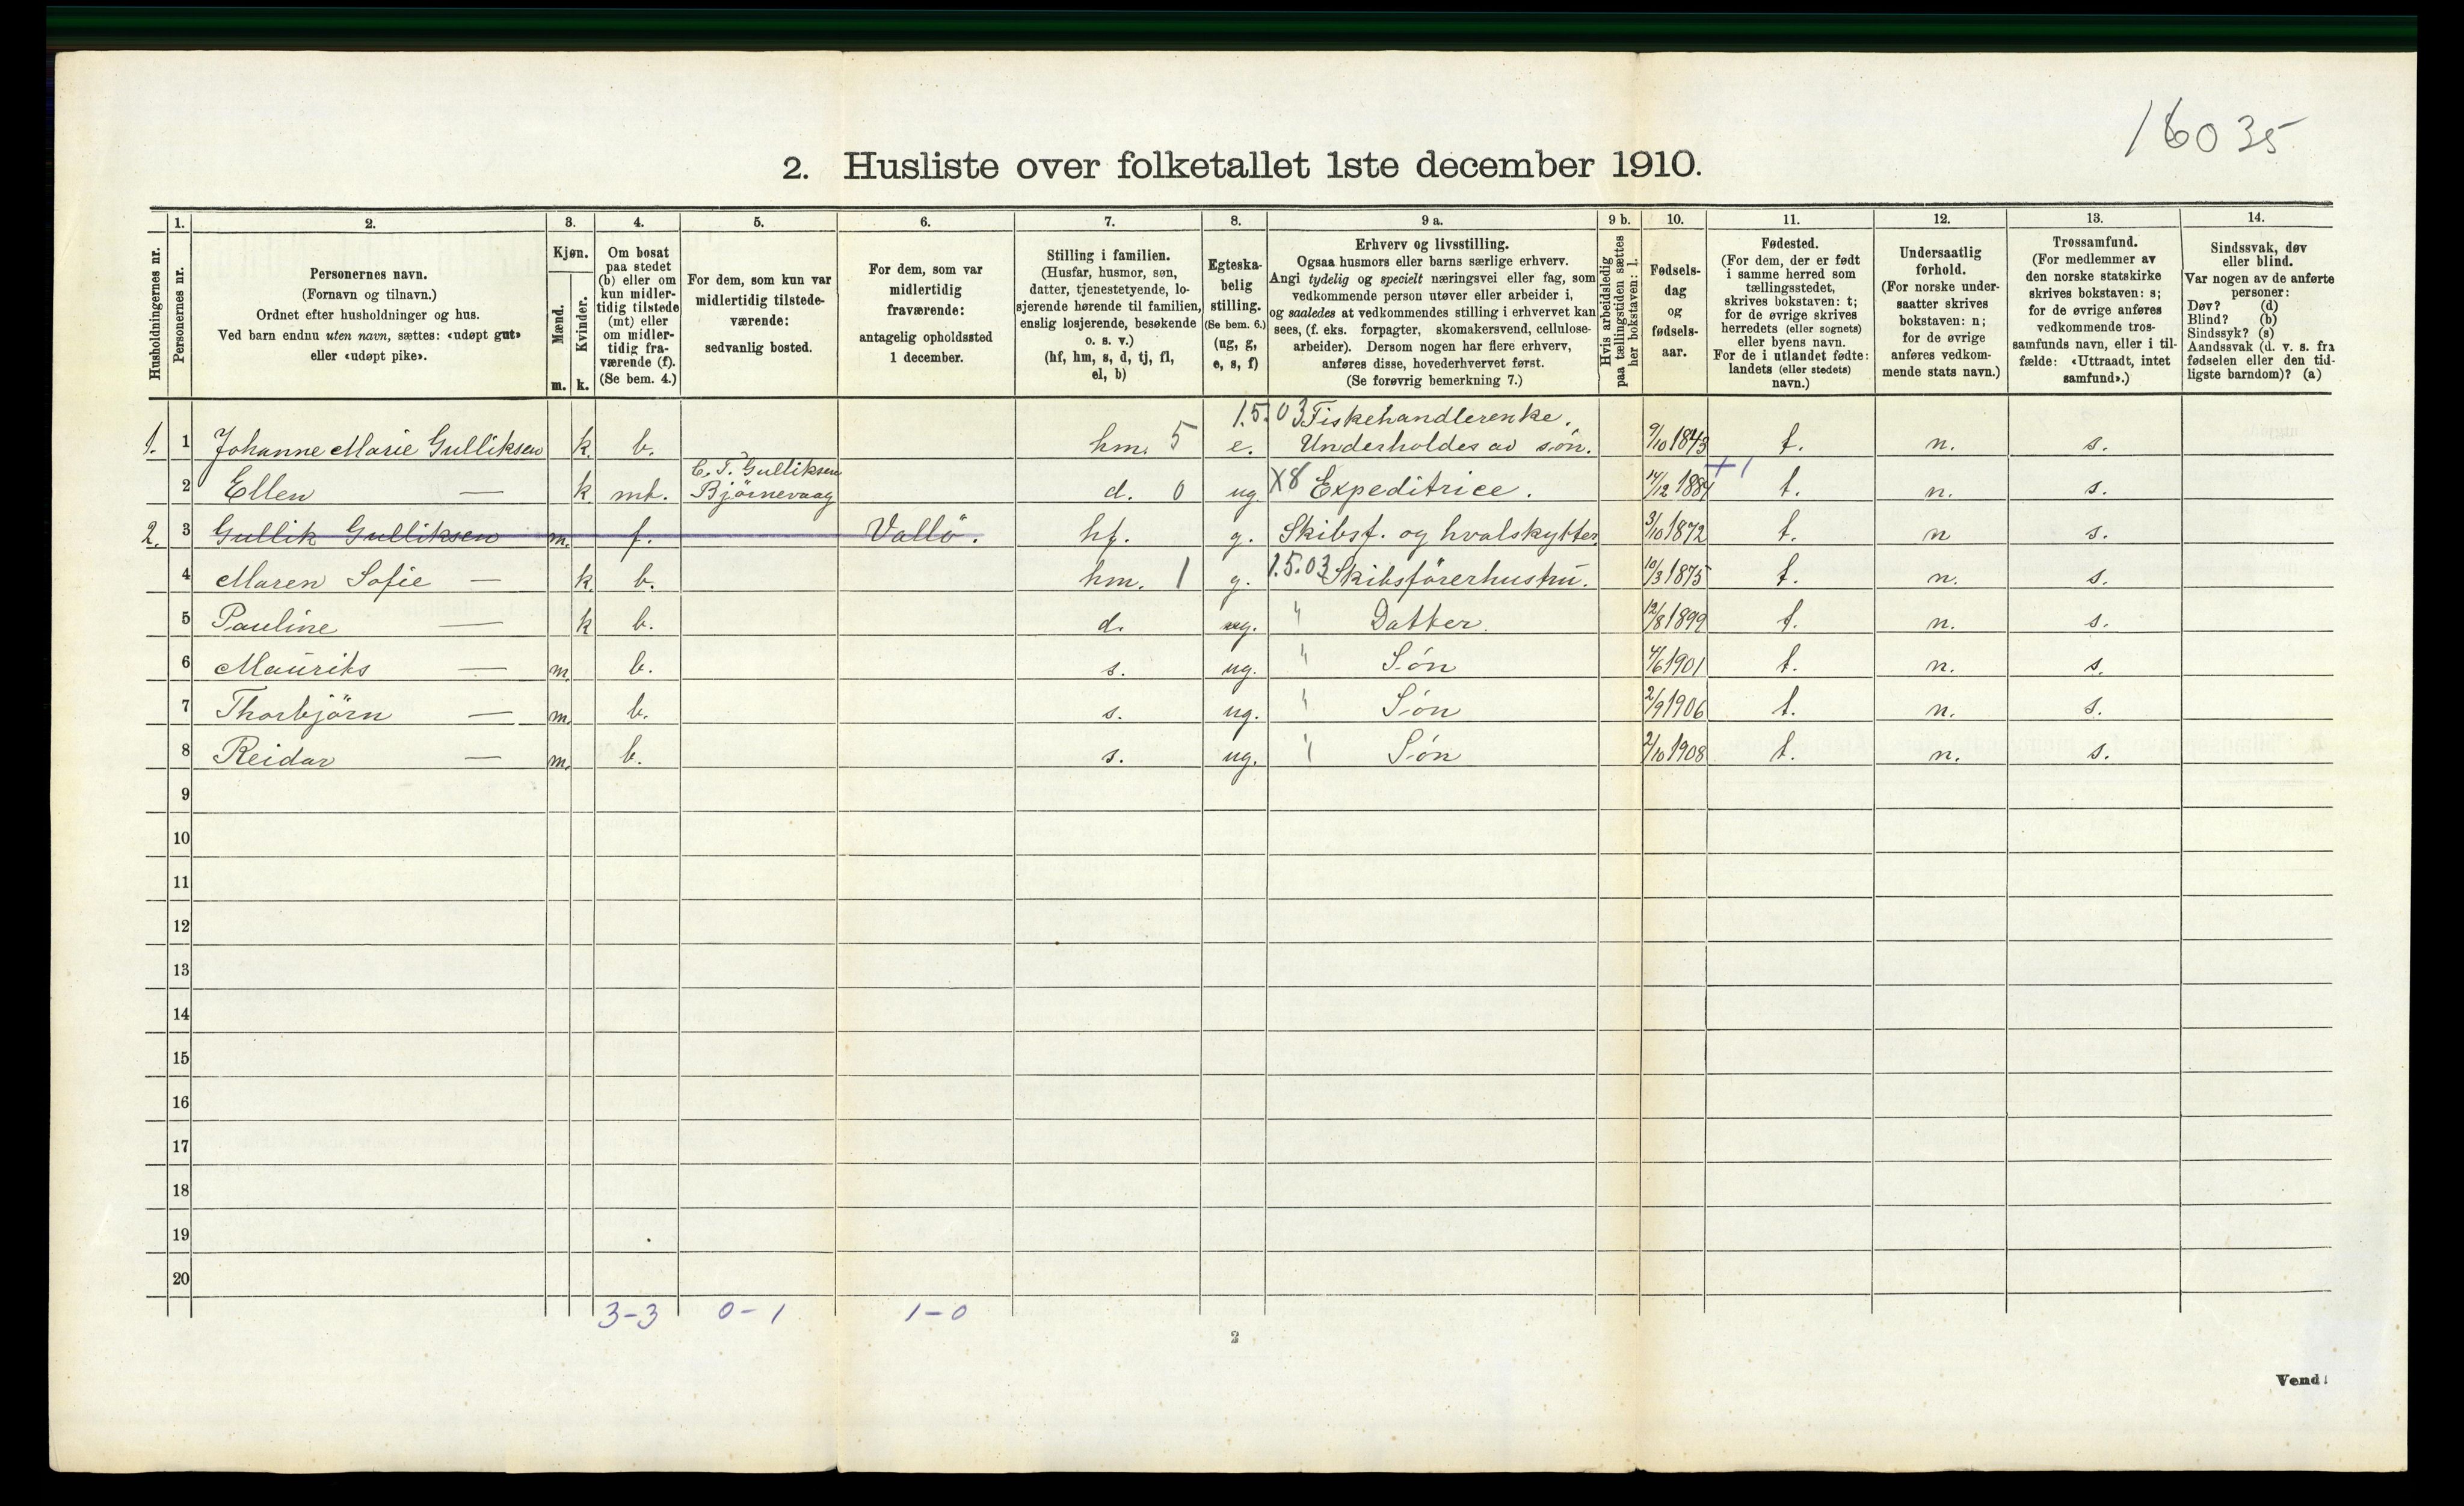 16035
2. Husliste over folketallet 1ste december 1910.
Husholdningernes nr.
1.
Personernes nr.
2.
Personernes navn.
(Fornavn og tilnavn.)
Ordnet efter husholdninger og hus.
Ved barn endnu uten navn, sættes: «udøpt gut»
eller «udøpt pike».
3.
Kjøn.
Mænd.
Kvinder.
m. k.
4.
Om bosat
paa stedet
(b) eller om
kun midler-
tidig tilstede
(mt) eller
om midler-
tidig fra-
værende (f).
(Se bem. 4.)
5.
For dem, som kun var
midlertidig tilstede-
værende:
sedvanlig bosted.
6.
For dem, som var
midlertidig
fraværende:
antagelig opholdssted
1 december.
7.
Stilling i familien.
(Husfar, husmor, søn,
datter, tjenestetyende, lo-
sjerende hørende til familien,
enslig losjerende, besøkende
o. s. v.)
(hf, hm, s, d, tj, fl,
el, b)
8.
Egteska-
belig
stilling.
(Se bem. 6.)
(ug, g,
e, s, f)
9 a.
Erhverv og livsstilling.
Ogsaa husmors eller barns særlige erhverv.
Angi tydelig og specielt næringsvei eller fag, som
vedkommende person utøver eller arbeider i,
og saaledes at vedkommendes stilling i erhvervet kan
sees, (f. eks. forpagter, skomakersvend, cellulose-
arbeider). Dersom nogen har flere erhverv,
anføres disse, hovederhvervet først.
(Se forøvrig bemerkning 7.)
9 b.
Hvis arbeidsledig
paa tællingstiden sættes
her bokstaven: l.
10.
Fødsels-
dag
og
fødsels-
aar.
11.
Fødested.
(For dem, der er født
i samme herred som
tællingsstedet,
skrives bokstaven: t;
for de øvrige skrives
herredets (eller sognets)
eller byens navn.
For de i utlandet fødte:
landets (eller stedets)
navn.)
12.
Undersaatlig
forhold.
(For norske under-
saatter skrives
bokstaven: n;
for de øvrige
anføres vedkom-
mende stats navn.)
13.
Trossamfund.
(For medlemmer av
den norske statskirke
skrives bokstaven: s;
for de øvrige anføres
vedkommende tros-
samfunds navn, eller i til-
fælde: «Uttraadt, intet
samfund».)
14.
Sindssvak, døv
eller blind.
Var nogen av de anførte
personer:
Døv? (d)
Blind? (b)
Sindssyk? (s)
Aandssvak (d. v. s. fra
fødselen eller den tid-
ligste barndom)? (a)
1.5.03 Fiskehandlerenke.
1. 1 Johanne Marie Gulliksen k. b. hm. 5 e. Underholdes av søn. 9/10 1843 t. n. s.
C. T. Gulliksen
2 Ellen — k mt. Bjørnevaag d. 0 ug. X8 Expeditrice. 14/12 1884 t. n. s.
2. 3 Gullik Gulliksen m. f. Vallö. hf. g. Skibsf. og hvalskytter 3/10 1872 t. n s.
4 Maren Sofie — k. b. hm. 1 g. 1.5.03 Skibsförerhustru. 10/3 1875 t. n. s.
5 Pauline — k b. d. ug. " Datter. 12/8 1899 t. n. s.
6 Mauriks — m. b. s. ug. " Søn 4/6 1901 t. n. s.
7 Thorbjörn — m. b. s. ug. " Søn 2/9 1906 t. n. s.
8 Reidar — m. b. s. ug. " Søn 2/10 1908 t. n. s.
9
10
11
12
13
14
15
16
17
18
19
20
3-3 0-1 1-0
2
Vend!